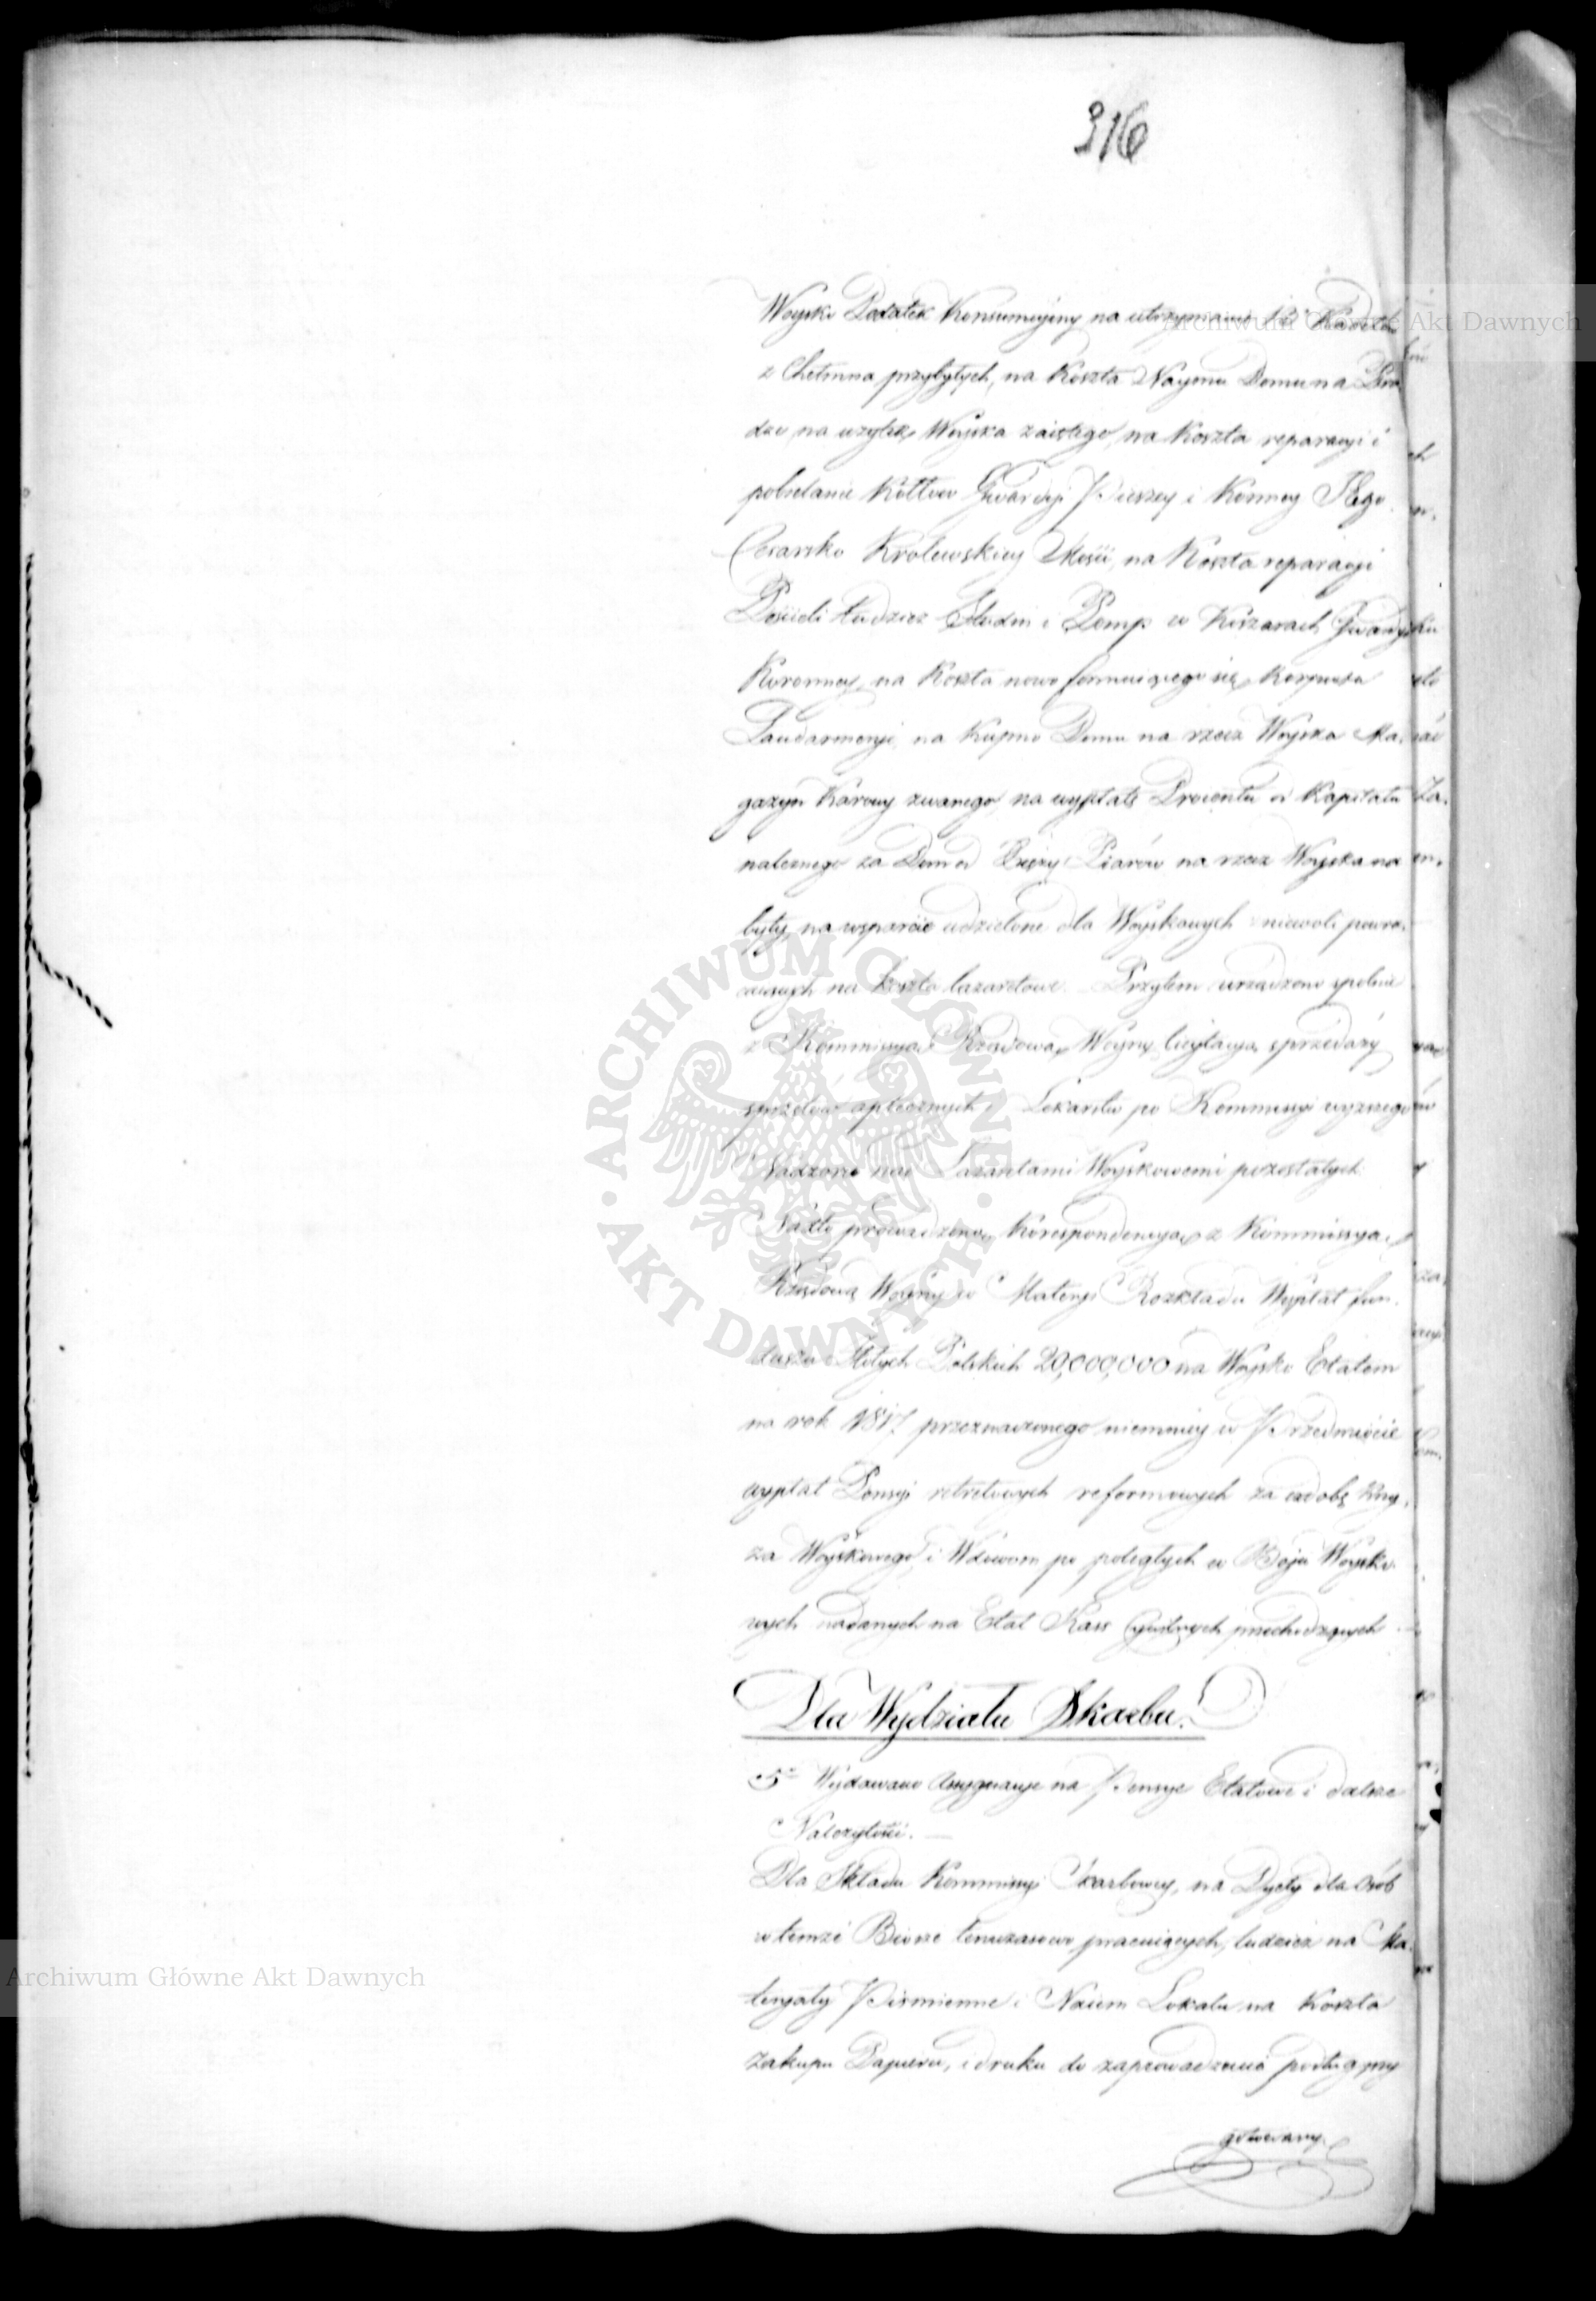 316
Woysko Dodatek Konsumcyiny na utrzymanie 12 Kadetów
z Chełmna przybyłych, na Koszta Naymu Domu na Pra
dze na użytek Woyska zaiętego, na Koszta reparacyi i
pobielanie Kotłów Gwardyi Pieszey i Konney JEgo
Cesarsko Królewskiey Mości, na Koszta reparacyi
Pościeli tudzież Studni i Pomp w Koszarach Gwardyi
Koronney, na Koszta nowo formuiącego się Korpusu
Żandarmeryi, na Kupno Domu na rzecz Woyska Ma
gazyn Karowy zwanego, na wypłatę Procentu od Kapitału
należnego za Dom od Xięży Piarów na rzecz Woyska na
byty, na wsparcie udzielone dla Woyskowych z niewoli powra
caiących na Koszta lazaretowe. Przytem urządzono spolnie
z Kommissyą Rządową Woyny licytacyą sprzedaży
sprzętów aptecznych i Lekarstw po Kommissyi wyższego
Nadzoru nad Lazaretami Woyskowemi pozostałych.
Nadto prowadzono Korespondencyą z Kommissyą
Rządową Woyny w Materyi Rozkładu Wypłat fun
duszu Złotych Polskich 20,000,000 na Woysko Etatem
na rok 1817 przeznaczonego niemniey w Przedmiocie
wypłat Pensyi retretowych reformowych za ozdobę Krzy
ża Woyskowego i Wdowom po poległych w Boju Woysko
wych nadanych na Etat Kass Cywilnych przechodzących
Dla Wydziału Skarbu.
5° Wydawano Assygnacye na Pensye Etatowe i dalsze
Należytości.
Dla Składu Kommissyi Skarbowey, na Dyety dla Osób
w temże Biorze tymczasowo pracuiących, tudzież na Ma
teryały Piśmienne i Naiem Lokalu na Koszta
Zakupu Papieru, i druku do zaprowadzenia podług przy
gotowany